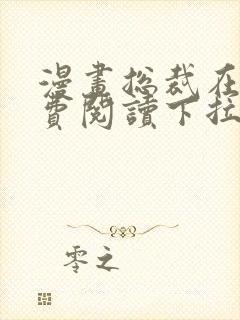 漫畫總裁在
費閱讀下拉
零之